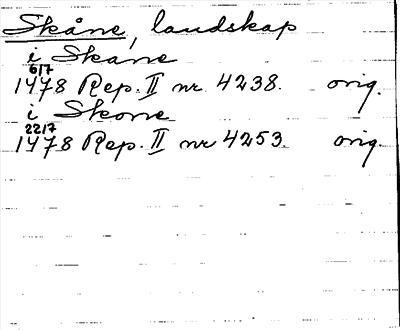 Skåne, landskap
i Skane
1478 6/7 Rep. II nr 4238. orig.
i Skone
1478 22/7 Rep. II nr 4253. orig.